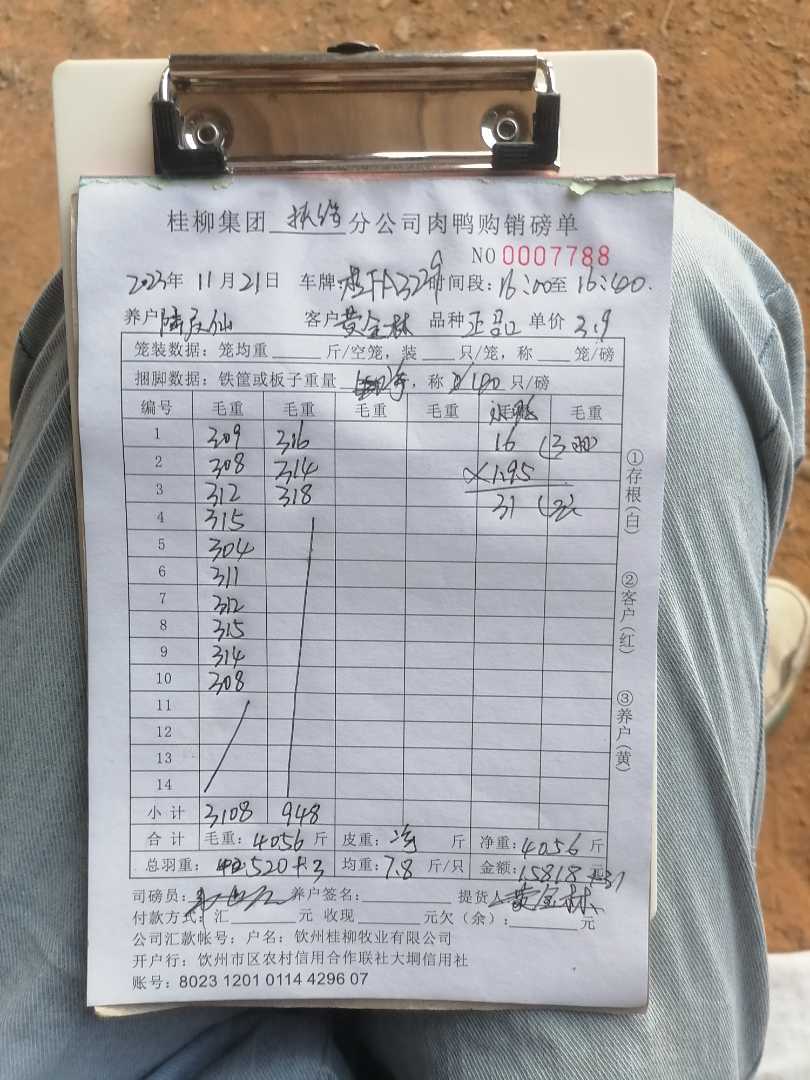 桂柳集团 分公司肉鸭购销磅单
NO 0007788
2023年 11月21日 车牌: 时间段: 16:00至 16:40.
养户 客户 黄金林 品种 单价 3.9
笼装数据: 笼均重 斤/空笼, 装 只/笼, 称 笼/磅
捆脚数据: 铁筐或板子重量 净, 称 只/磅
编号 毛重 毛重 毛重 毛重 毛重
1 309 316 16 (3
2 308 314 ×1.95
3 312 318 31
4 315
5 304
6 311
7 312
8 315
9 314
10 308
11
12
13
14
小计 3108 948
合计 毛重: 4056 斤 皮重: 净 斤 净重: 4056 斤
总羽重: 520+3 均重: 7.8 斤/只 金额: 15818 +31
司磅员: 养户签名: 提货人 黄金林
付款方式: 汇 元 收现 元欠(余): 元
公司汇款帐号: 户名: 钦州桂柳牧业有限公司
开户行: 钦州市区农村信用合作联社大垌信用社
账号: 8023 1201 0114 4296 07
①存根(白)
②客户(红)
③养户(黄)